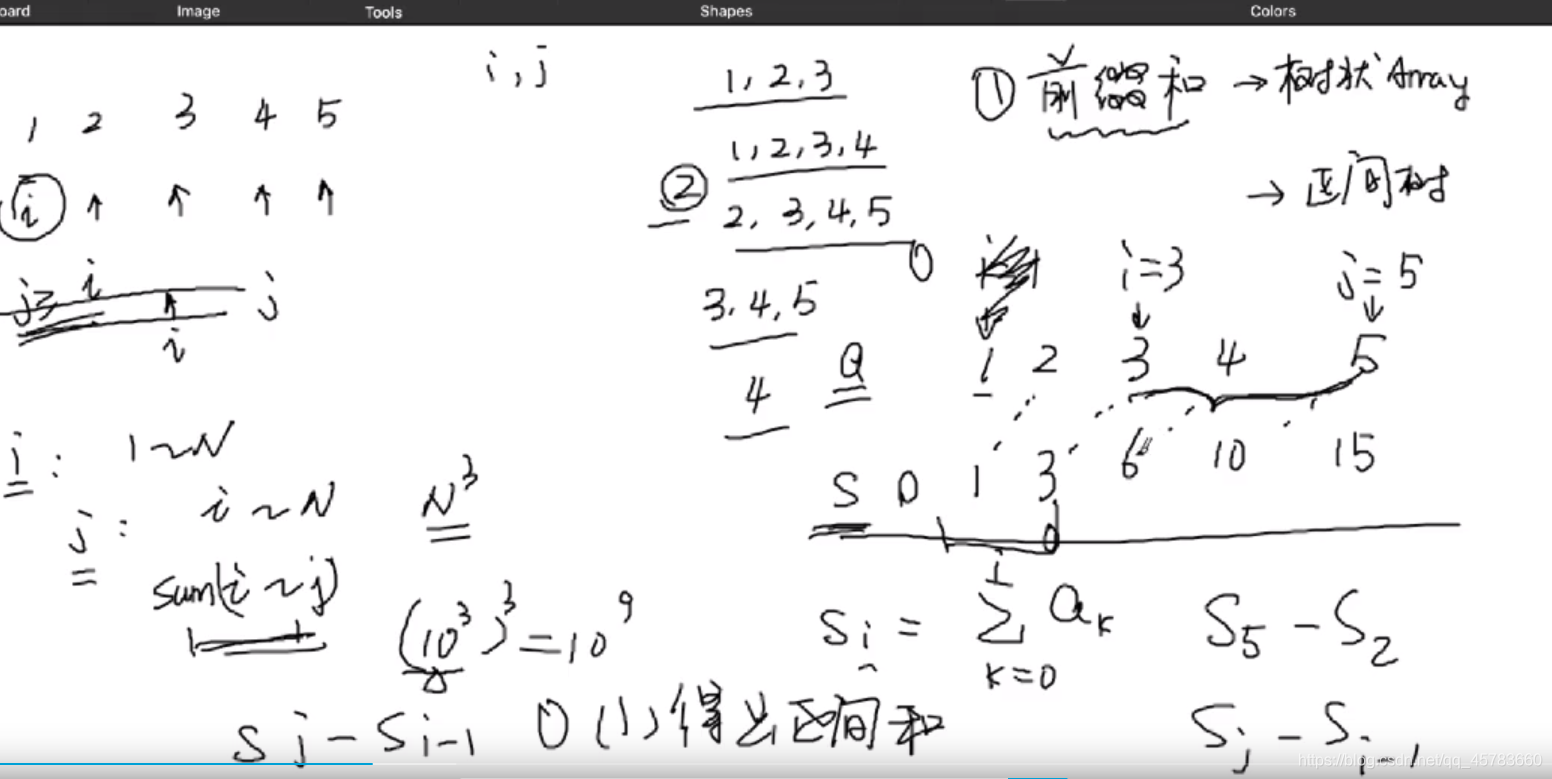 oard Image Tools Shapes Colors
i, j
1 2 3 4 5
i
j≥i j
i
i: 1~N
j: i~N N³
sum(i~j)
(10³)³=10⁹
Sj-Si-1 O(1)得出区间和
1, 2, 3
1, 2, 3, 4
② 2, 3, 4, 5
3, 4, 5
4
① 前缀和 → 树状Array
→ 区间树
0 i=3 j=5
a 1 2 3 4 5
S 0 1 3 6 10 15
Si = ∑ i k=0 ak S5-S2
Sj-Si-1
https://blog.csdn.net/qq_45783660